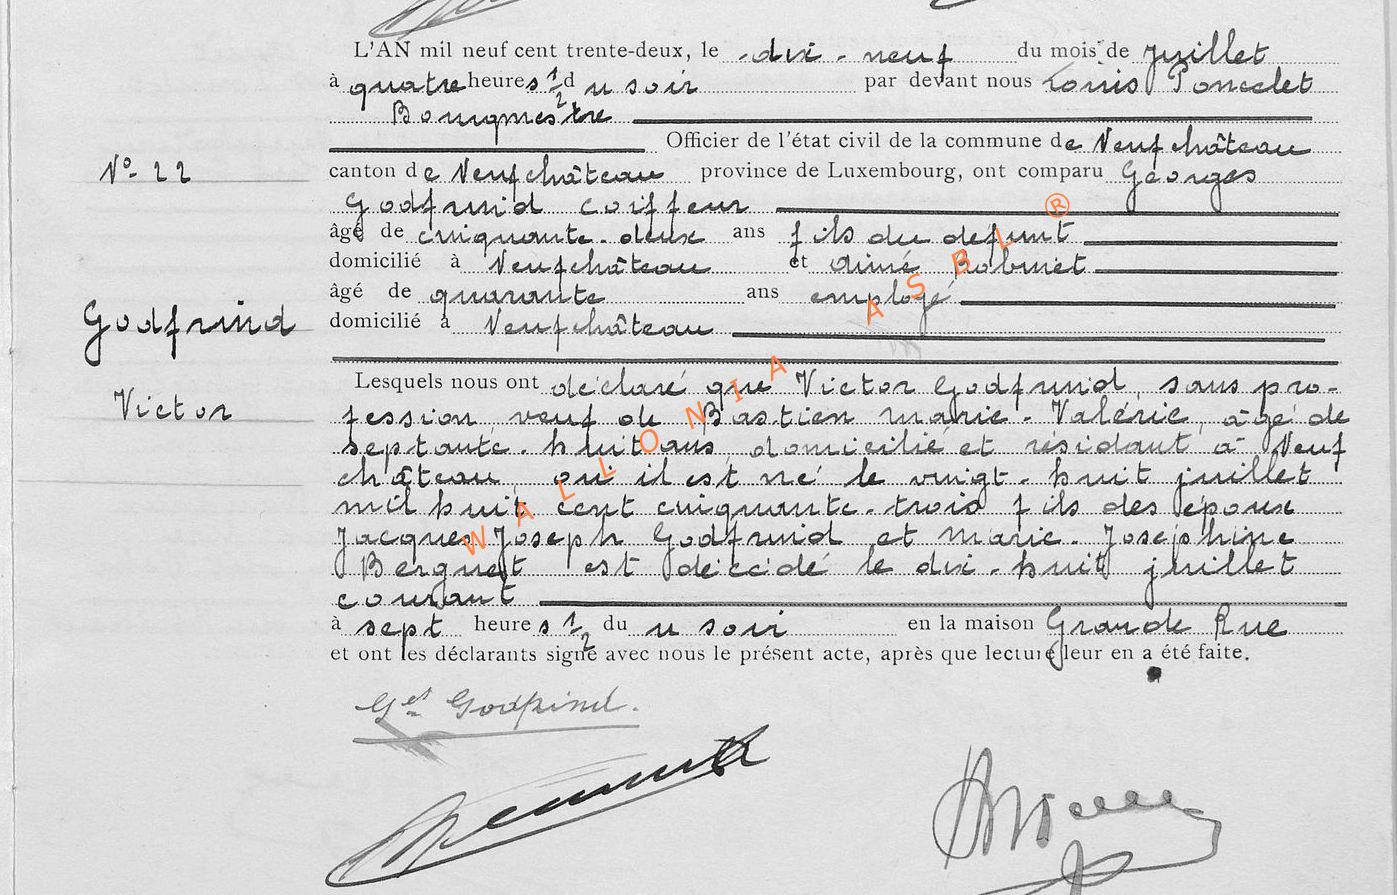 L'AN mil neuf cent trente-deux, le dix-neuf du mois de juillet
à quatre heures 1/2 du soir par devant nous Louis Poncelet
Bourgmestre
Officier de l'état civil de la commune de Neufchâteau
N° 22
canton de Neufchâteau province de Luxembourg, ont comparu Georges
Godfrind coiffeur
âgé de cinquante-deux ans fils du defunt
domicilié à Neufchâteau et Aimé Robinet
âgé de quarante ans employé
Godfrind
domicilié à Neufchâteau
Lesquels nous ont déclaré que Victor Godfrind, sans pro-
Victor
fession, veuf de Bastien Marie-Valérie, âgé de
septante-huit ans, domicilié et résidant à Neuf
château, où il est né le vingt-huit juillet
mil huit cent cinquante-trois fils des époux
Jacques Joseph Godfrind et Marie-Joséphine
Berguet est décédé le dix-huit juillet
courant
à sept heures 1/2 du soir en la maison Grande Rue
et ont les déclarants signé avec nous le présent acte, après que lecture leur en a été faite.
Ges Godfrind.
WALLONIA ASBL ®